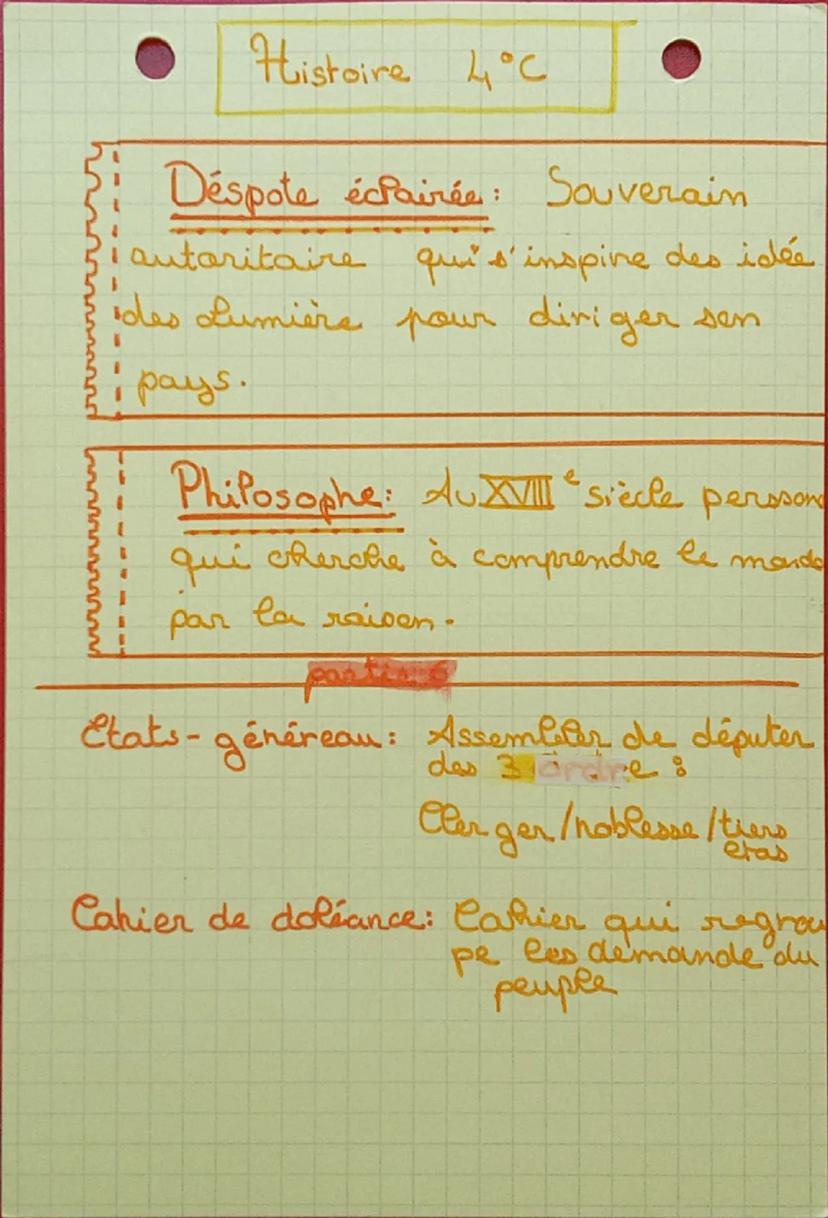 Histoire 4°C
Déspote éclairée: Souverain
autoritaire qui s'inspire des idée
des Lumière pour diriger son
pays.
Philosophe: Au XVIIIe siècle personn
qui cherche à comprendre le monde
par la raison.
partie 6
Etats-généreau: Assembler de députer
des 3 ordre :
Clerger/noblesse/tiers
etas
Cahier de doléance: Cahier qui regrou
pe les demande du
peuple